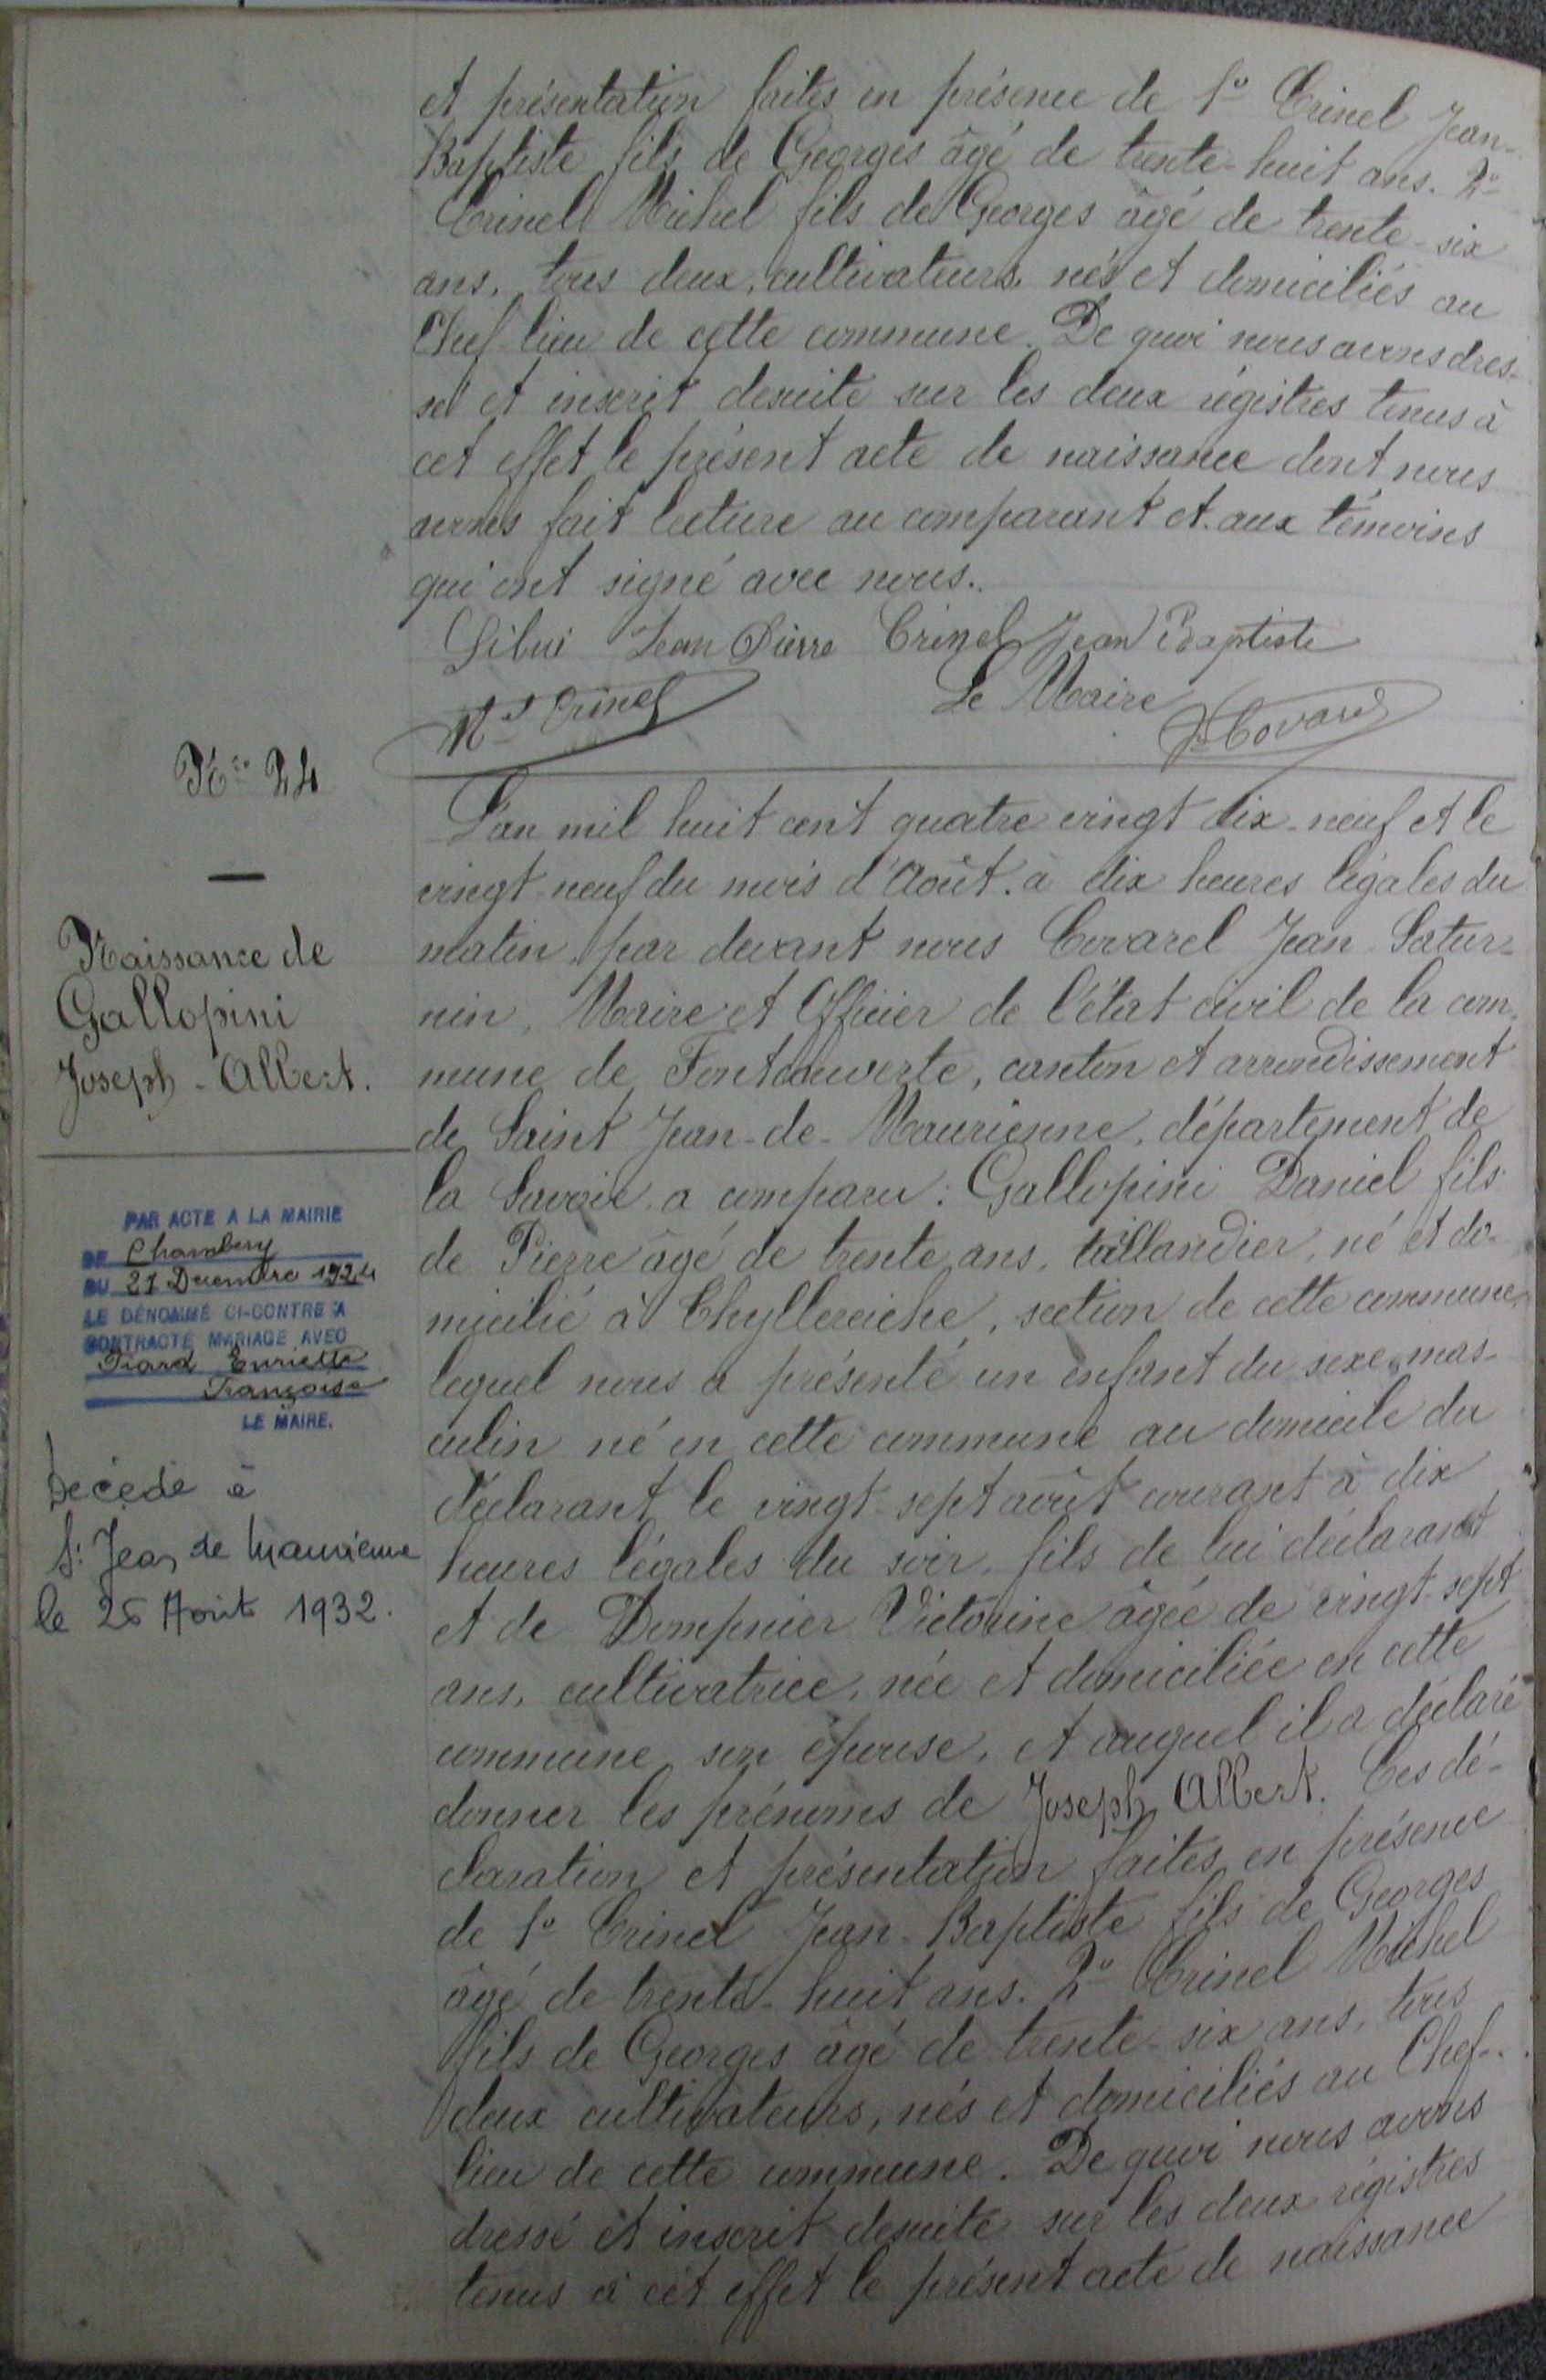 et présentation faites en présence de 1º Crinel Jean-
Baptiste fils de Georges âgé de trente-huit ans. 2º
Crinel Michel fils de Georges âgé de trente-six
ans, tous deux, cultivateurs nés et domiciliés au
Chef-lieu de cette commune. De quoi nous avons dres-
sé et inscrit desuite sur les deux régistres tenus à
cet effet le présent acte de naissance dont nous
avons fait lecture au comparant et aux témoins
qui ont signé avec nous.
Jean Pierre Crinel Jean Baptiste
Mel Crinel
Le Maire
JCovarel
Nro 24
Naissance de
Gallopini
Joseph-Albert.
PAR ACTE A LA MAIRIE
DE Chambery
DU 27 Decembre 1924
LE DÉNOMMÉ CI-CONTRE A
CONTRACTÉ MARIAGE AVEC
Enriette
Françoise
LE MAIRE.
Decédé à
St Jean de Maurienne
le 26 Aout 1932.
L'an mil huit cent quatre vingt dix-neuf et le
vingt-neuf du mois d'Août. à dix heures légales du
matin, par devant nous Covarel Jean Satur-
nin, Maire et Officier de l'état civil de la com-
mune de Fontcouverte, canton et arrondissement
de Saint Jean-de-Maurienne, département de
la Savoie, a comparu: Gallopini Daniel fils
de Pierre âgé de trente ans, taillandier, né et do-
micilié à Chyllereiche, section de cette commune,
lequel nous a présenté un enfant du sexe mas-
culin né en cette commune au domicile du
déclarant le vingt-sept août courant à dix
heures légales du soir, fils de lui déclarant
et de Dompnier Victorine âgée de vingt-sept
ans, cultivatrice, née et domiciliée en cette
commune, son épouse, et auquel il a déclaré
donner les prénoms de Joseph Albert. Ces dé-
claration et présentation faites en présence
de 1º Crinel Jean-Baptiste fils de Georges
âgé de trente-huit ans. 2º Crinel Michel
fils de Georges âgé de trente-six ans, tous
deux cultivateurs, nés et domiciliés au Chef-
lieu de cette commune. De quoi nous avons
dressé et inscrit desuite sur les deux régistres
tenus à cet effet le présent acte de naissance